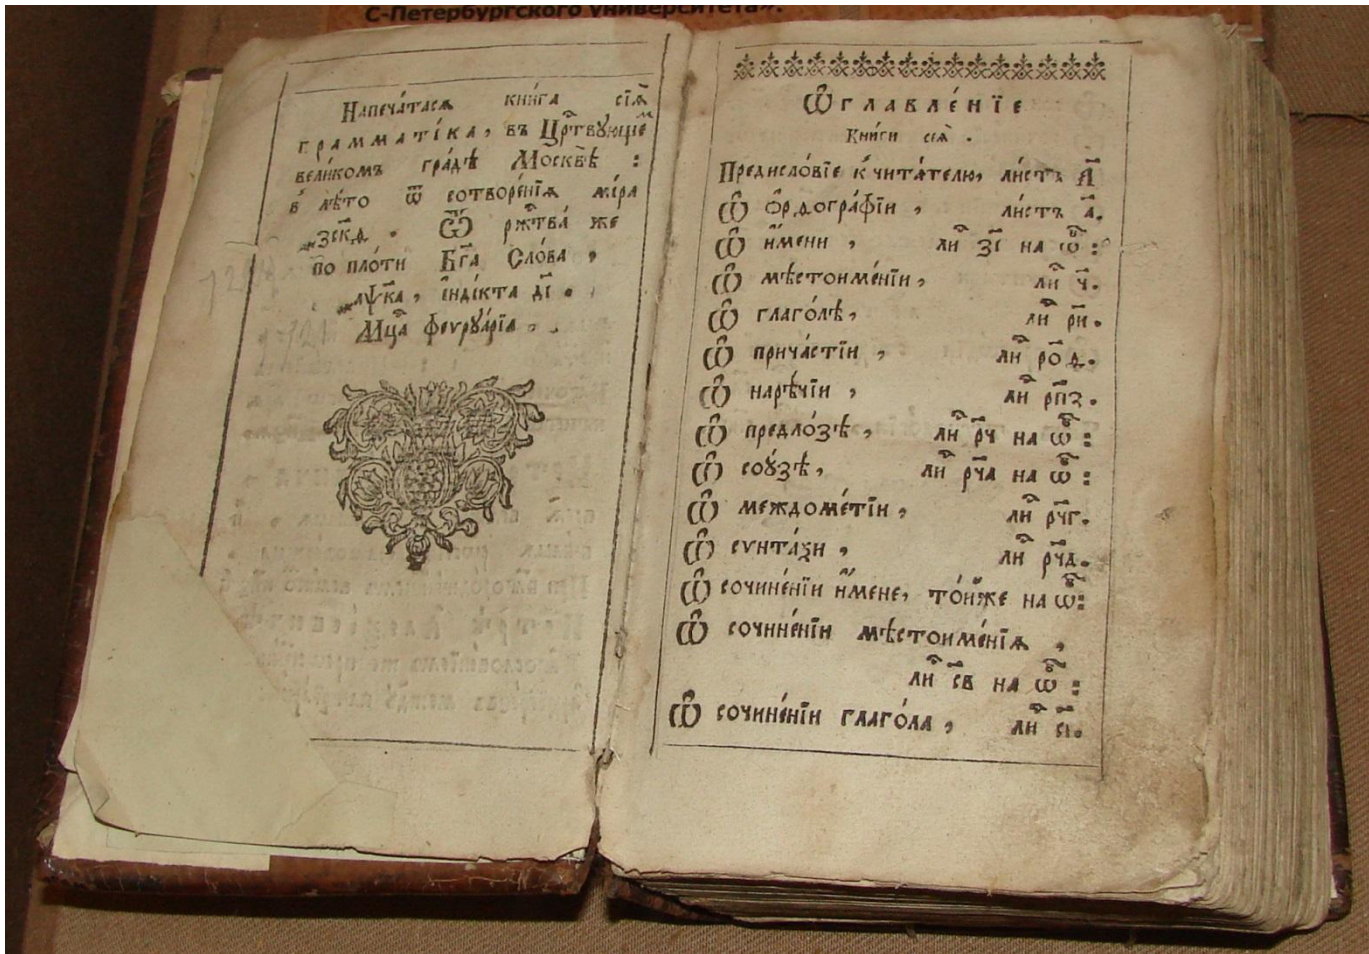 С-Петербургского университета».
Напеча́тасѧ кни́га сїѧ̀
грамматі́ка, въ Црⷭ҇твꙋющеⷨ
вели́комъ гра́дѣ Москвѣ̀ :
в̾ лѣ́то ѿ сотворе́нїѧ мі́ра
҂зс҃кд . Ѿ ржⷭ҇тва́ же
по пло́ти Бг҃а Сло́ва ,
҂аѱ҃ка , і҆ндї́кта д҃і .
Мцⷭ҇а феѵрꙋа́рїа .
Ѡ҆главле́нїе
Кни́ги сеѧ̀ .
Предисло́вїе к̾ чита́телю, ли́стъ А҃
Ѽ ѻ҆рдогра́фїи , ли́стъ а҃.
Ѽ и҆́мени , лиⷭ҇ з҃і на ѡ҆бⷪ҇:
Ѽ мѣстоиме́нїи, лиⷭ҇ ч҃.
Ѽ глаго́лѣ, лиⷭ҇ р҃и.
Ѽ прича́стїи , лиⷭ҇ ро҃д.
Ѽ нарѣ́чїи , лиⷭ҇ рп҃з.
Ѽ предло́зѣ , лиⷭ҇ р҃ч на ѡ҆бⷪ҇:
Ѽ сою́зѣ, лиⷭ҇ рч҃а на ѡ҆бⷪ҇:
Ѽ междоме́тїи , лиⷭ҇ рч҃г.
Ѽ сѵнта́ѯи , лиⷭ҇ рч҃д.
Ѽ сочине́нїи и҆́мене, то́йже на ѡ҆бⷪ҇:
Ѽ сочине́нїи мѣстоиме́нїѧ ,
лиⷭ҇ с҃в на ѡ҆бⷪ҇:
Ѽ сочине́нїи глаго́ла , лиⷭ҇ с҃і.